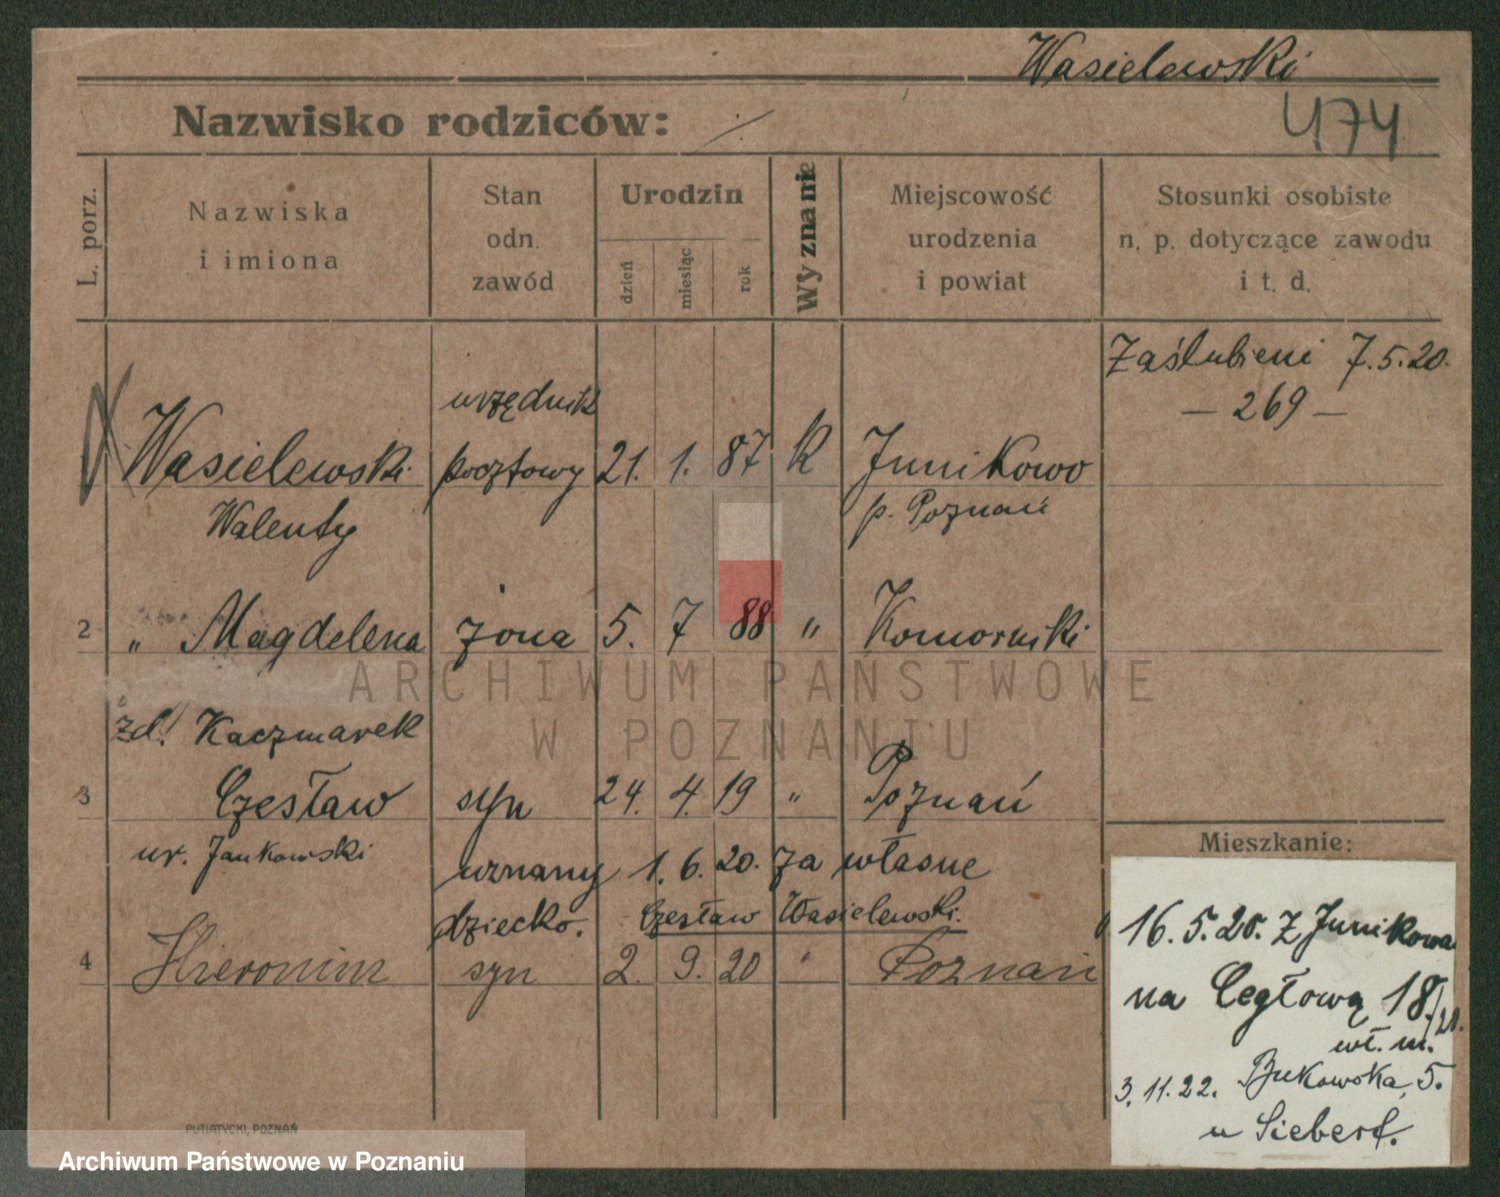 Wasielewski
Nazwisko rodziców: 
474
L. porz.
Nazwiska
i imiona
Stan
odn.
zawód
Urodzin
dzień
miesiąc
rok
Wyznanie
Miejscowość
urodzenia
i powiat
Stosunki osobiste
n. p. dotyczące zawodu
i t. d.
Zaślubieni 7.5.20.
— 269 —
urzędnik
Wasielewski pocztowy 21. 1. 87 k Junikowo
Walenty p. Poznań
2 „ Magdelena żona 5. 7 88 „ Komorniki
zd. Kaczmarek
3 Czesław syn 24. 4. 19 „ Poznań
ur. Jankowski
uznany 1. 6. 20. za własne
dziecko. Czesław Wasielewski.
4 Hieronim syn 2. 9. 20 „ Poznań
Mieszkanie:
16. 5. 20. z Junikowa
na Cegłową 18/20.
wł. m.
3. 11. 22. Bukowska, 5.
u Siebert.
PUTIATYCKI, POZNAŃ
ARCHIWUM PAŃSTWOWE
W POZNANIU
Archiwum Państwowe w Poznaniu